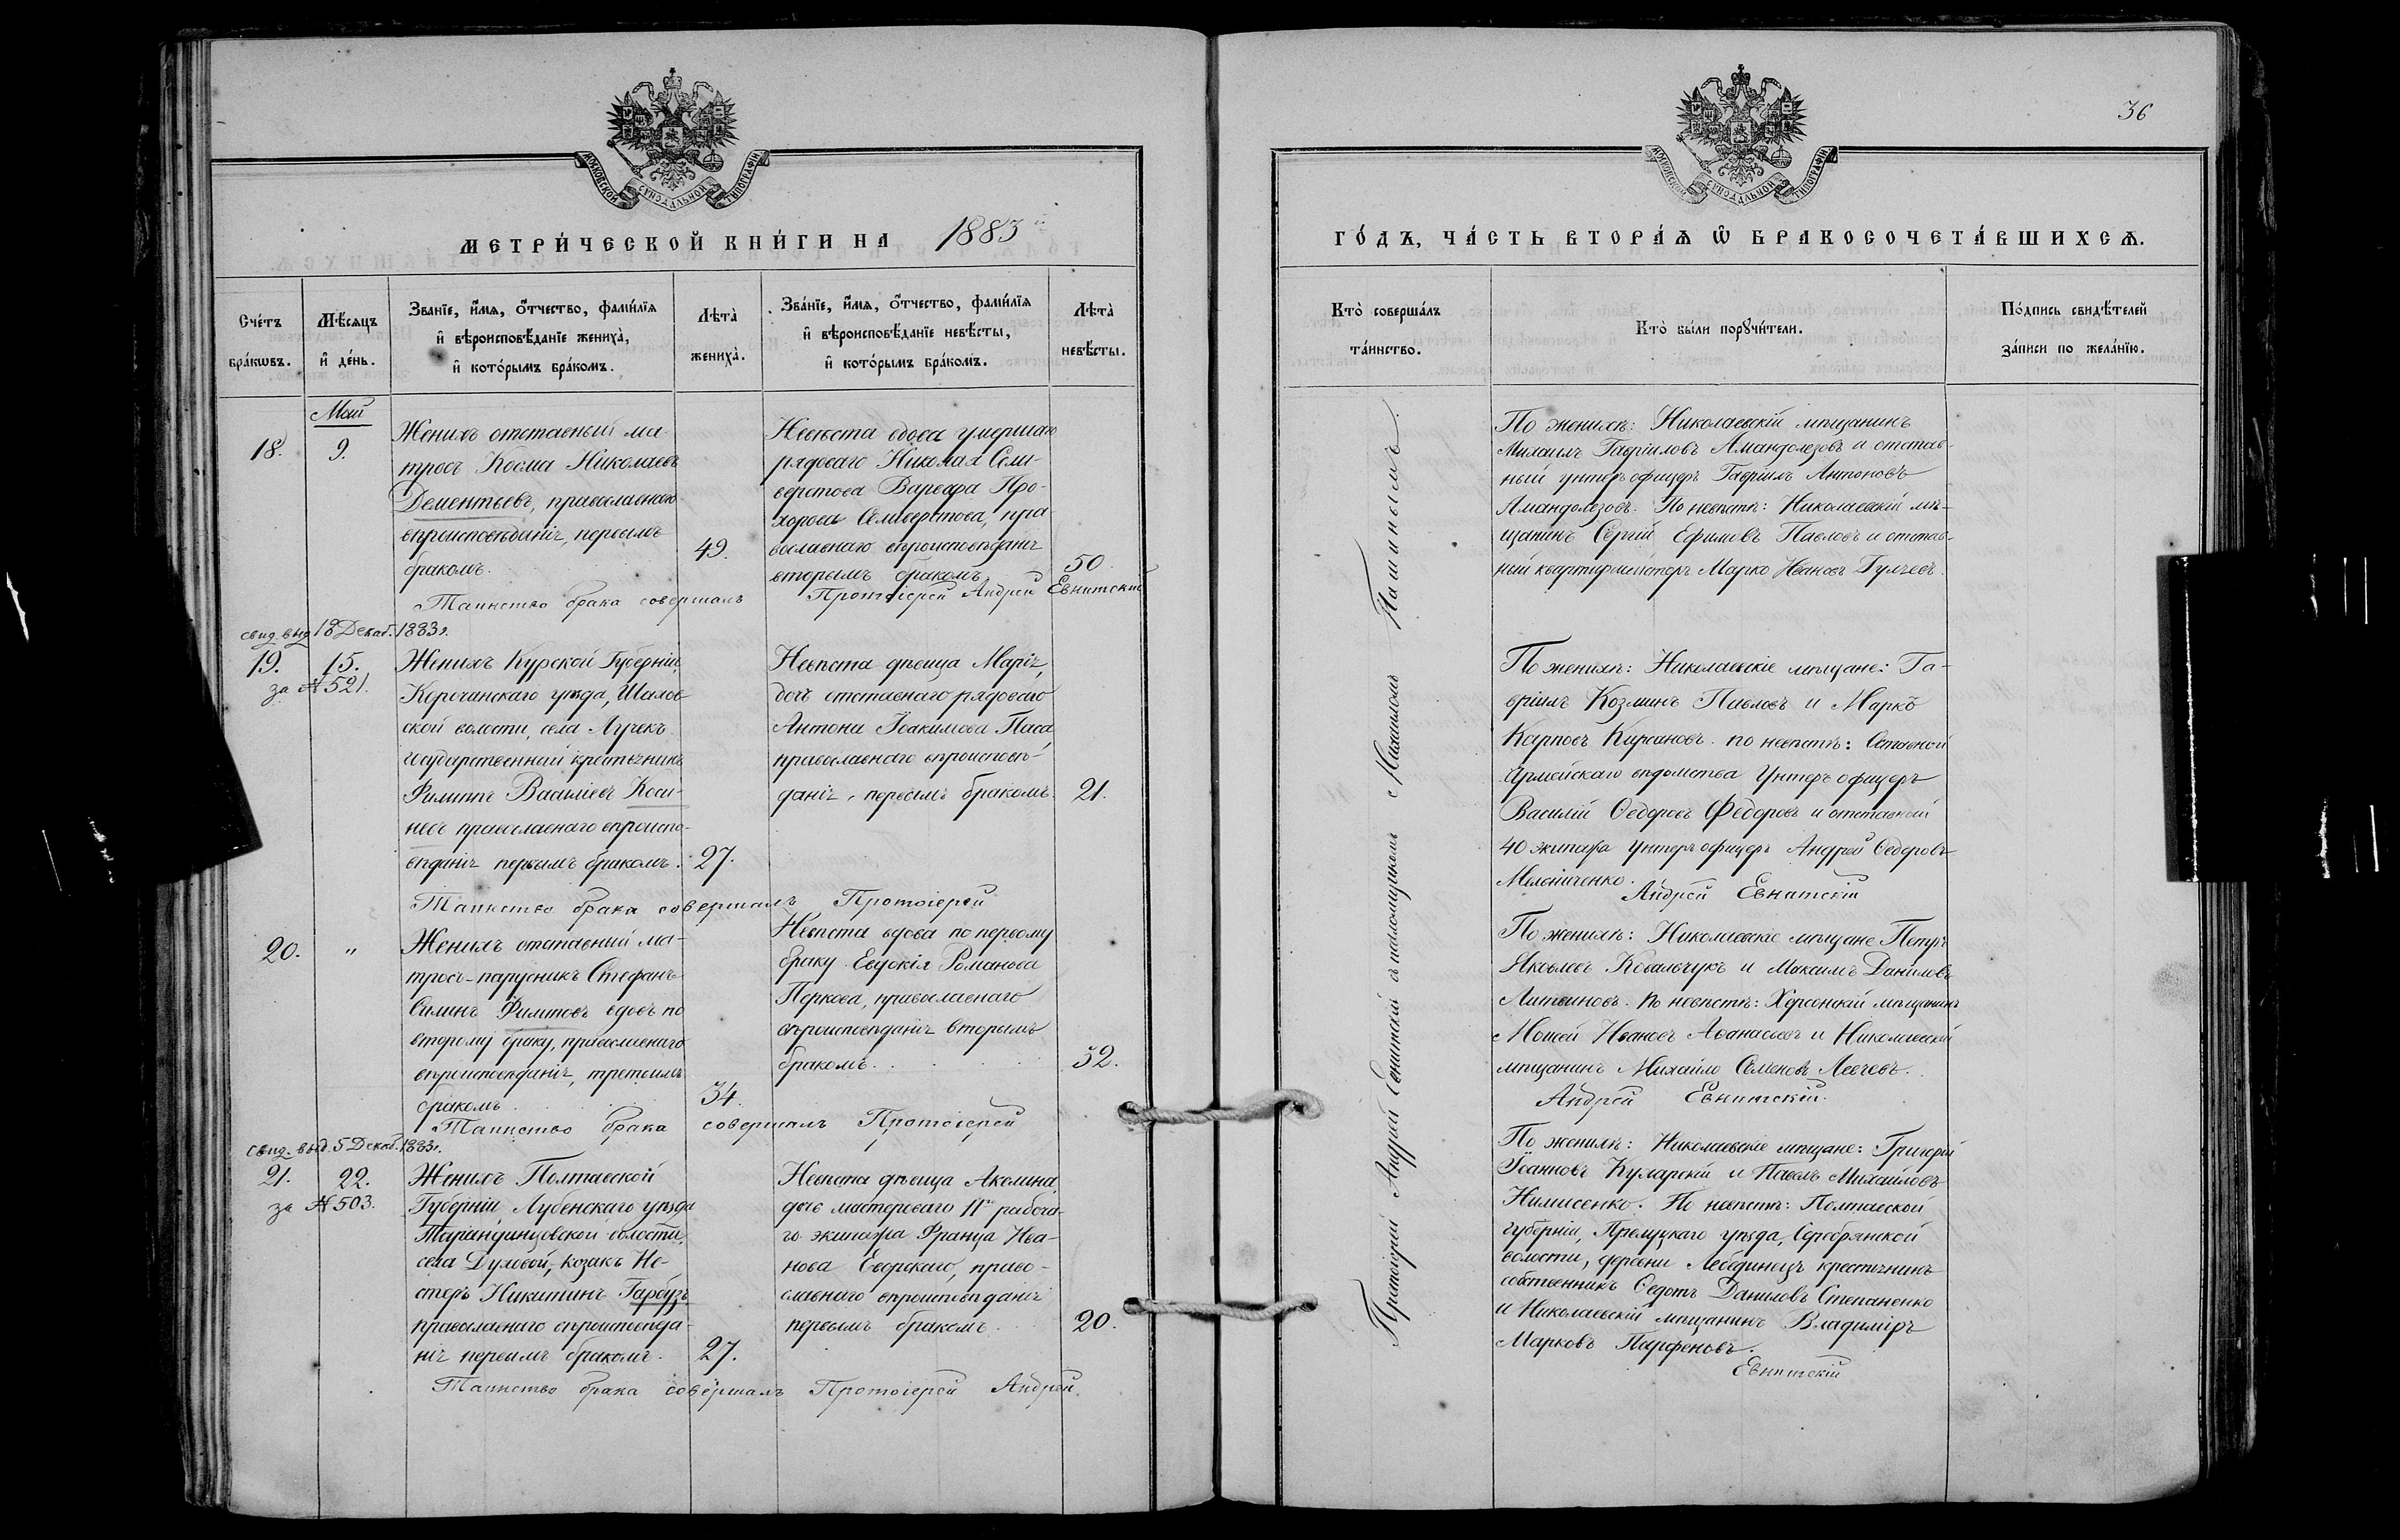 36
МОСКОВСКОЙ СѴНОДАЛЬНОЙ ТИПОГРАФІИ.
МОСКОВСКОЙ СѴНОДАЛЬНОЙ ТИПОГРАФІИ.
МЕТРИ́ЧЕСКОЙ КНИ́ГИ НА 1883й
ГО́ДЪ, ЧА́СТЬ ВТОРА́Ѧ Ѡ҆ БРАКОСОЧЕТА́ВШИХСѦ.
Сче́тъ
бра́кѡвъ.
Мѣ́сѧцъ
и҆ де́нь.
Зва́нїе, и҆́мѧ, ѻ҆́тчество, фами́лїѧ
и҆ вѣроисповѣ́данїе жениха̀,
и҆ кото́рымъ бра́комъ.
Лѣта̀
жениха̀.
Зва́нїе, и҆́мѧ, ѻ҆́тчество, фами́лїѧ
и҆ вѣроисповѣ́данїе невѣ́сты,
и҆ кото́рымъ бра́комъ.
Лѣта̀
невѣ́сты.
Кто̀ соверша́лъ
та́инство.
Кто̀ бы́ли порꙋчи́тели.
По́дпись свидѣ́телей
за́писи по жела́нїю.
Май
18.
9.
Женихъ отставный ма-
тросъ Косма Николаевъ
Дементьевъ, православнаго
вѣроисповѣданія, первымъ
бракомъ.
49.
Невѣста вдова умершаго
рядоваго Николая Сели-
верстова Варвара Про-
хорова Селиверстова, пра-
вославнаго вѣроисповѣданія
вторымъ бракомъ
50.
По женихѣ: Николаевскій мѣщанинъ
Михаилъ Гавріиловъ Амандолезовъ и отстав-
ный унтеръ офицеръ Гавріилъ Антоновъ
Амандолезовъ. По невѣстѣ: Николаевскій мѣ-
щанинъ Сергій Ефимовъ Павловъ и отстав-
ный квартирмейстеръ Марко Ивановъ
Таинство брака совершалъ Протоіерей Андрей Евнитскій
свид. выд. 18 Декаб. 1883г.
19.
15.
за № 521.
Женихъ Курской Губерніи,
Корочанскаго уѣзда, Шахов
ской волости, села Лучекъ
государственный крестьянинъ
Филиппъ Василіевъ Коси-
невъ православнаго вѣроиспо-
вѣданія первымъ бракомъ.
27.
Невѣста дѣвица Марія,
дочь отставнаго рядоваго
Антона Іоакимова Паса
православнаго вѣроисповѣ-
данія, первымъ бракомъ.
21.
По женихѣ: Николаевскіе мѣщане: Га-
вріилъ Козминъ Павловъ и Марко
Карповъ Кирсановъ. по невѣстѣ:
Армейскаго вѣдомства Унтеръ офицеръ
Василій Ѳедоровъ Федоровъ и отставной
40 экипажа унтеръ офицеръ Андрей Ѳедоровъ
Мельниченко.
Таинство брака совершалъ Протоіерей Андрей Евнитскій
20.
"
Женихъ отставний ма-
тросъ-парусникъ Стефанъ
Силинъ Филитовъ вдовъ по
второму браку, православнаго
вѣроисповѣданія, третьимъ
бракомъ.
34.
Невѣста вдова по первому
браку Евдокія Романова
Перкова, православнаго
вѣроисповѣданія вторымъ
бракомъ.
32.
По женихѣ: Николаевскіе мѣщане Петръ
Яковлевъ Ковальчукъ и Максимъ Даниловъ
Литвиновъ. По невѣстѣ: Херсонскій мѣщанинъ
Моисей Ивановъ Аѳанасьевъ и Николаевскій
мѣщанинъ Михайло Семеновъ
Таинство брака совершалъ Протоіерей Андрей Евнитскій.
свид. выд. 5 Декаб. 1883г.
21.
22.
за № 503.
Женихъ Полтавской
Губерніи Лубенскаго уѣзда
Тарандинцовской волости,
села Духовой, козакъ Не-
сторъ Никитинъ Гарбузъ
православнаго вѣроисповѣда-
нія первымъ бракомъ.
27.
Невѣста дѣвица Акелина,
дочь мастероваго 11го рабоча-
го экипажа Франца Ива-
нова Еворскаго, право-
славнаго вѣроисповѣданія
первымъ бракомъ.
20.
По женихѣ: Николаевскіе мѣщане: Григорій
Іоанновъ Кухарскій и Павелъ Михайловъ
Нимисенко. По невѣстѣ: Полтавской
губерніи, Прилуцкаго уѣзда, Серебрянской
волости, деревни Лебединецъ крестьянинъ
собственникъ Ѳедотъ Даниловъ Степаненко
и Николаевскій мѣщанинъ Владиміръ
Марковъ Парфеновъ.
Таинство брака совершалъ Протоіерей Андрей Евнитскій
Протоіерей Андрей Евнитскій съ псаломщикомъ Михаиломъ Пашинымъ.